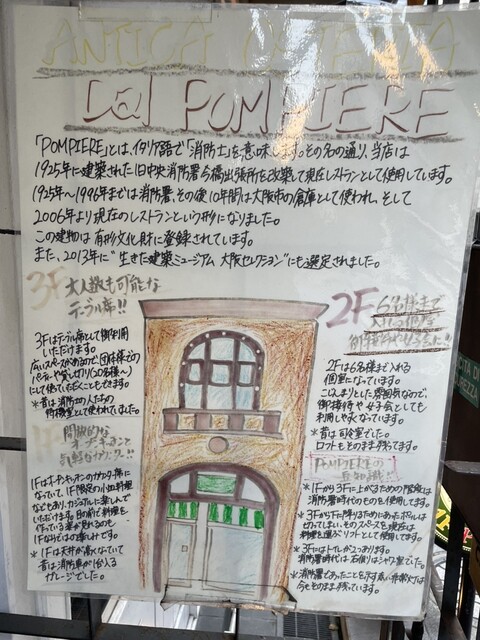 ANTICA OSTERIA
Dal POMPIERE
「POMPIERE」とは、イタリア語で「消防士」を意味します。その名の通り、当店は
1925年に建築された旧中央消防署今橋出張所を改築して現在レストランとして使用しています。
1925年〜1996年までは消防署、その後10年間は大阪市の倉庫として使われ、そして
2006年より現在のレストランという形になりました。
この建物は有形文化財に登録されています。
また、2013年に"生きた建築ミュージアム 大阪セレクション"にも選定されました。
3F 大人数も可能な
テーブル席!!
3Fはテーブル席として御利用
いただけます。
広いスペースがあるので、団体様での
パーティーや貸し切り(30名様〜)
にしても使っていただくこともできます。
*昔は消防士の人たちの
待機室として使われていました。
1F 開放的な
オープンキッチンと
気軽なカウンター!!
1Fはオープンキッチンのカウンター席に
なっていて、1F限定の小皿料理
などもあり、カジュアルに楽しんで
いただけます。目の前で料理を
作っている姿が見れるのも
1Fならではの楽しみです。
*1Fは天井が高くなっていて
昔は消防車が1台入る
ガレージでした。
2F 6名様まで
入れる個室
御接待や女子会に!!
2Fは6名様まで入れる
個室になっています。
こじんまりとした雰囲気なので、
御接待や女子会としても
利用しやすくなっています。
*昔は司令室でした。
ロフトもそのまま残ってます。
POMPIEREの
豆知識
*1Fから3Fに上がるための階段は
消防署時代のものを使用してます。
*3Fから1Fに降りるためにあったポールは
切れてしまい、そのスペースを現在は
料理を運ぶリフトとして使用してます。
*3Fにはトイレが2つあります。
消防署時代は右側はシャワー室でした。
*消防署であったことを示す赤い非常灯は
今もそのまま残っています。